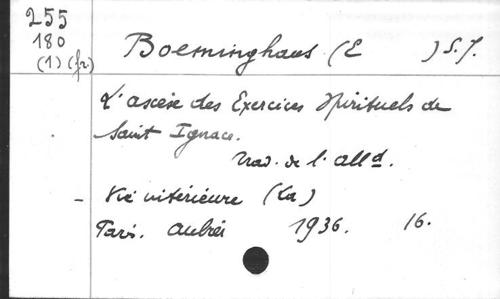 255
180
(1) (fr.)
Boeminghaus (E ) S. J.
L'ascèse des Exercices Spirituels de
Saint Ignace.
Trad. de l'alld.
- Vie intérieure (La)
Paris. Aubier 1936. 16.